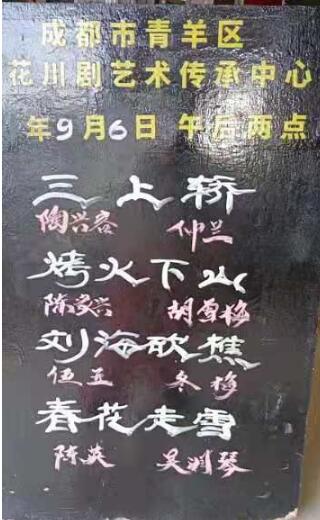 成都市青羊区
花川剧艺术传承中心
年9月6日 午后两点
三上轿
陶兴容 仲兰
烤火下山
陈家兴 胡雪梅
刘海砍樵
伍五 冬梅
春花走雪
陈英 吴润琴